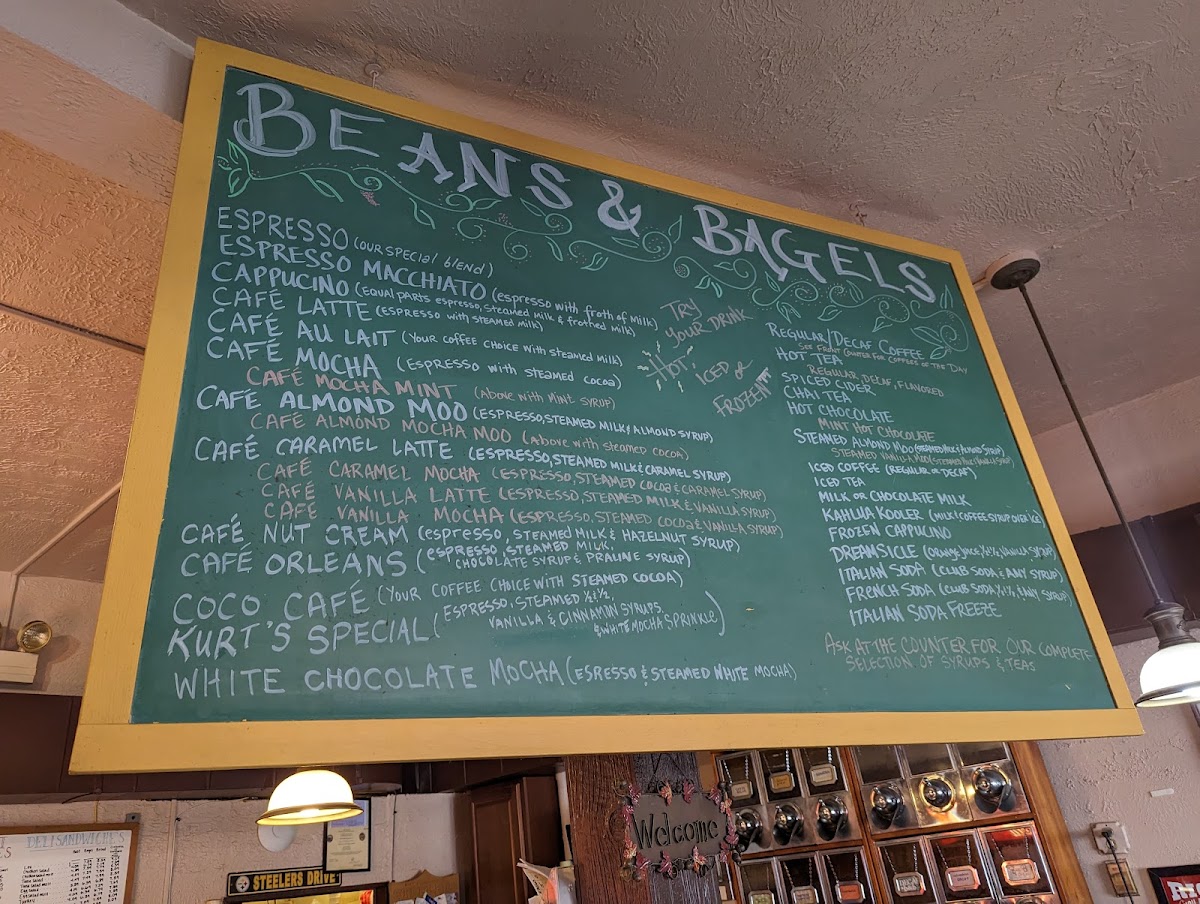 BEANS & BAGELS
ESPRESSO (OUR SPECIAL blEND)
ESPRESSO MACCHIATO (espresso with froth of milk)
CAPPUCINO (EQUAL PARTS espresso, steamed milk & frothed milk)
CAFÉ LATTE (ESPRESSO with steamed milk)
CAFÉ AU LAIT (YOUR COFFEE CHOICE with steamed milk)
CAFÉ MOCHA (ESPRESSO with STEAMED COCOA)
CAFÉ MOCHA MINT (Above with MINT SYRUP)
CAFÉ ALMOND MOO (ESPRESSO, STEAMED MILK & ALMOND SYRUP)
CAFÉ ALMOND MOCHA MOO (Above with steamed cocoa)
CAFÉ CARAMEL LATTE (ESPRESSO, STEAMED MILK & CARAMEL SYRUP)
CAFÉ CARAMEL MOCHA (ESPRESSO, STEAMED COCOA & CARAMEL SYRUP)
CAFÉ VANILLA LATTE (ESPRESSO, STEAMED MILK & VANILLA SYRUP)
CAFÉ VANILLA MOCHA (ESPRESSO, STEAMED COCOA & VANILLA SYRUP)
CAFÉ NUT CREAM (espresso, STEAMED MILK & HAZELNUT SYRUP)
CAFÉ ORLEANS (ESPRESSO, STEAMED MILK,
CHOCOLATE SYRUP & PRALINE SYRUP)
COCO CAFÉ (YOUR COFFEE CHOICE WITH STEAMED COCOA)
KURT'S SPECIAL (ESPRESSO, STEAMED ½ & ½,
VANILLA & CINNAMON SYRUPS,
& WHITE MOCHA SPRINKLE)
WHITE CHOCOLATE MOCHA (ESPRESSO & STEAMED WHITE MOCHA)
TRY
YOUR DRINK
HOT,
ICED &
FROZEN
REGULAR/DECAF COFFEE
SEE FRONT COUNTER FOR COFFEES OF THE DAY
HOT TEA
REGULAR, DECAF, FLAVORED
SPICED CIDER
CHAI TEA
HOT CHOCOLATE
MINT HOT CHOCOLATE
STEAMED ALMOND MOO (STEAMED MILK & ALMOND SYRUP)
STEAMED VANILLA MOO (STEAMED MILK & VANILLA SYRUP)
ICED COFFEE (REGULAR OR DECAF)
ICED TEA
MILK OR CHOCOLATE MILK
KAHLUA KOOLER (MILK/COFFEE SYRUP OVER ICE)
FROZEN CAPPUCINO
DREAMSICLE (ORANGE JUICE, ½ & ½, VANILLA SYRUP)
ITALIAN SODA (CLUB SODA & ANY SYRUP)
FRENCH SODA (CLUB SODA, ½ & ½, ANY SYRUP)
ITALIAN SODA FREEZE
ASK AT THE COUNTER FOR OUR COMPLETE
SELECTION OF SYRUPS & TEAS
DELI SANDWICHES
STEELERS DRIVE
Welcome